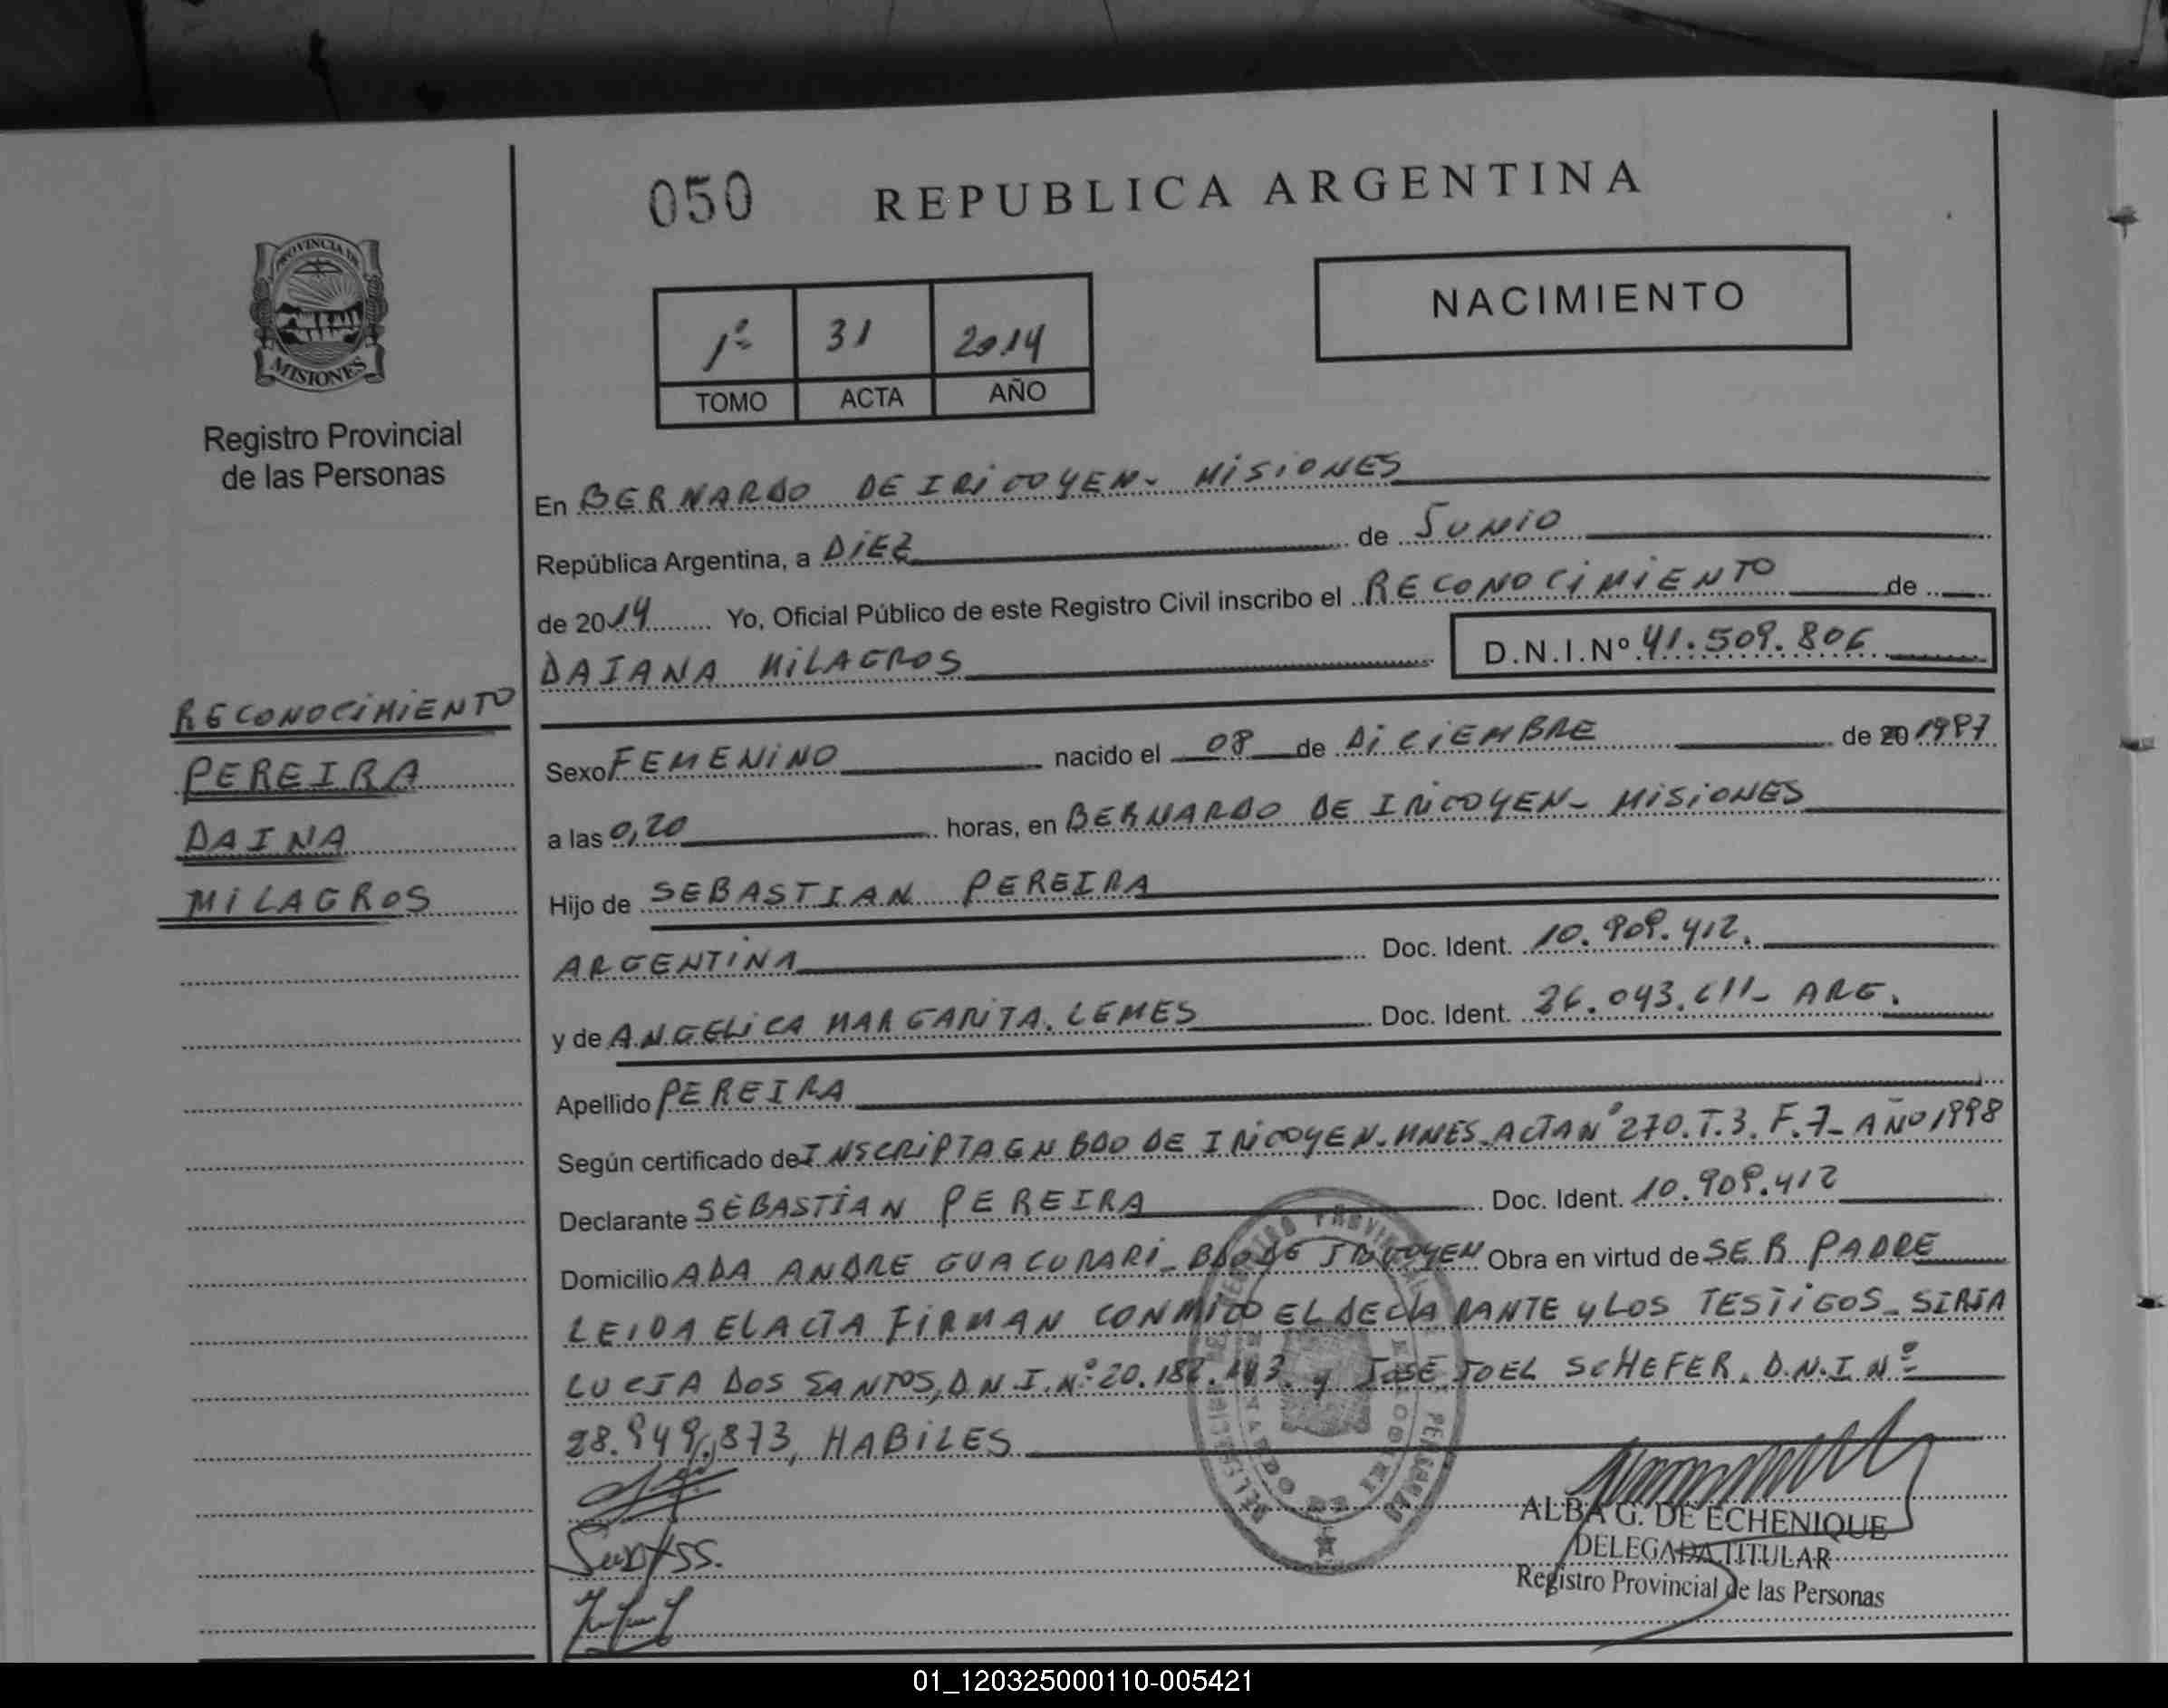 050 REPUBLICA ARGENTINA
PROVINCIA DE
MISIONES
NACIMIENTO
1º 31 2014
TOMO ACTA AÑO
Registro Provincial
de las Personas
En BERNARDO DE IRIGOYEN - MISIONES
República Argentina, a DIEZ de JUNIO
de 2014 Yo, Oficial Público de este Registro Civil inscribo el RECONOCIMIENTO de
DAIANA MILAGROS D.N.I.Nº 41.509.806
RECONOCIMIENTO
PEREIRA
DAINA
MILAGROS
Sexo FEMENINO nacido el 08 de DICIEMBRE de 20 1997
a las 0,20 horas, en BERNARDO DE IRIGOYEN - MISIONES
Hijo de SEBASTIAN PEREIRA
ARGENTINA Doc. Ident. 10.909.412.
y de ANGELICA MARGARITA. LEMES Doc. Ident. 26.043.611- ARG.
Apellido PEREIRA
Según certificado de INSCRIPTA EN BDO DE IRIGOYEN. MNES. ACTA Nº 270. T.3. F.7- AÑO 1998
Declarante SEBASTIAN PEREIRA Doc. Ident. 10.909.412
Domicilio ADA ANDRE GUACURARI - BDO DE IRIGOYEN Obra en virtud de SER PADRE
LEIDA EL ACTA FIRMAN CONMIGO EL DECLARANTE y LOS TESTIGOS -
LUCIA DOS SANTOS, D N I. Nº 20. y JOSE JOEL SCHEFER. D.N.I Nº
28.949.873, HABILES
ALBA G. DE ECHENIQUE
DELEGADA TITULAR
Registro Provincial de las Personas
01_120325000110-005421